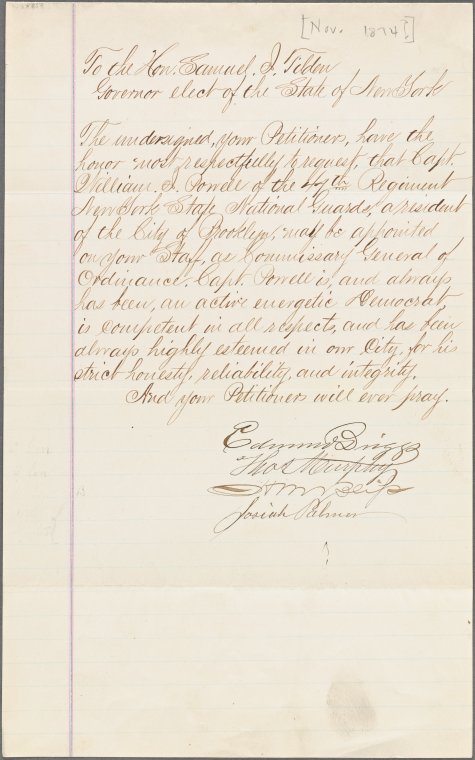 [Nov. 1874?]
To the Hon. Samuel J. Tilden
Governor elect of the State of New York
The undersigned, your Petitioners, have the
honor most respectfully to request, that Capt.
William J. Powell of the 47th Regiment
New York State National Guards, a resident
of the City of Brooklyn, may be appointed
on your Staff, as Commissary General of
Ordinance. Capt. Powell is, and always
has been, an active energetic Democrat
is competent in all respects, and has been
always highly esteemed in our City, for his
strict honesty, reliability, and integrity.
And your Petitioners will ever pray.
Edmund Briggs
Thos Murphy
Josiah Palmer